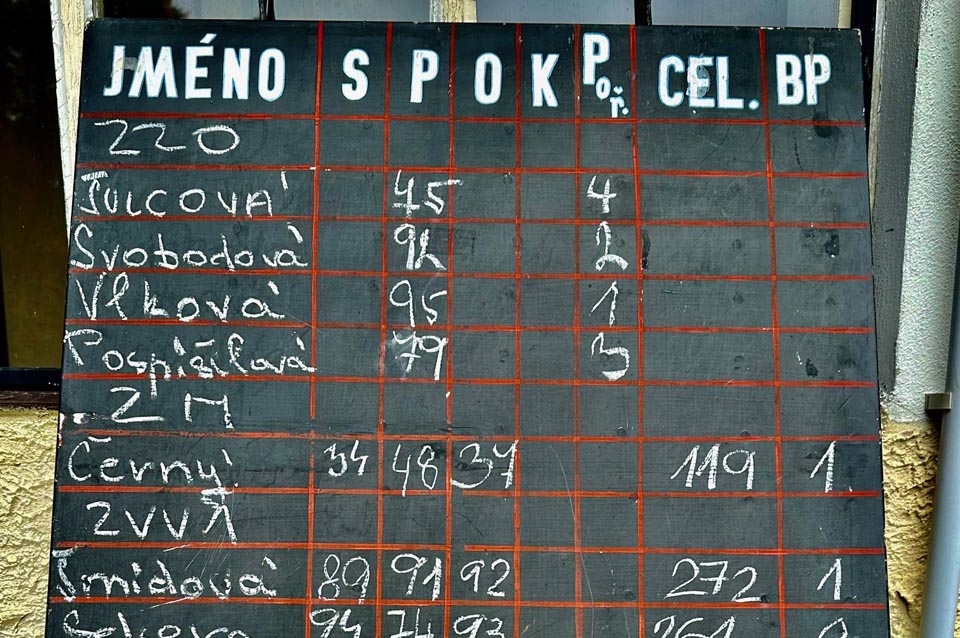 JMÉNO S P O K Poř. CEL. BP
ZZO
Šulcová 75 4
Svobodová 92 2
Vlková 95 1
Pospíšilová 79 3
ZM
Černý 34 48 37 119 1
ZVV1
Šmídová 89 91 92 272 1
94 74 93 261